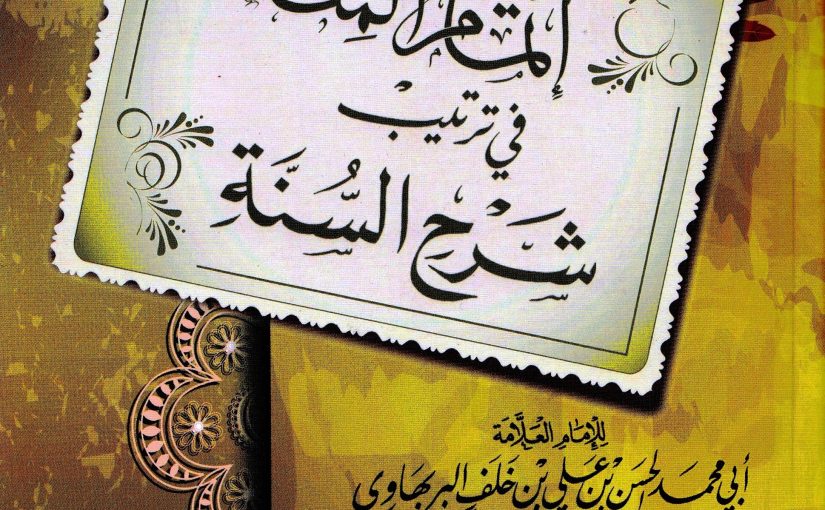 إتمام المنة
في ترتيب
شَرْحِ السُّنَّةِ
لِلإِمَامِ العَلَّامَة
أبي محمد الحسن بن علي بن خلف البربهاوي